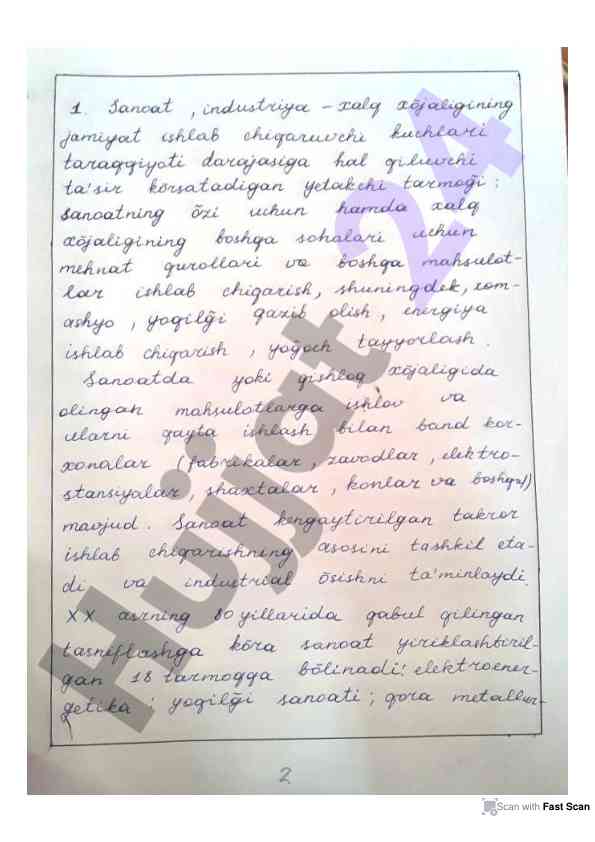 1. Sanoat , industriya – xalq xõjaligining
jamiyat ishlab chiqaruvchi kuchlari
taraqqiyoti darajasiga hal qiluvchi
ta'sir kõrsatadigan yetakchi tarmoği ;
Sanoatning õzi uchun hamda xalq
xõjaligining boshqa sohalari uchun
mehnat qurollari va boshqa mahsulot-
lar ishlab chiqarish, shuningdek, xom-
ashyo , yoqilği qazib olish , energiya
ishlab chiqarish , yoğoch tayyorlash .
Sanoatda yoki qishloq xõjaligida
olingan mahsulotlarga ishlov va
ularni qayta ishlash bilan band kor-
xonalar (fabrikalar , zavodlar , elektro-
stansiyalar , shaxtalar , konlar va boshqa))
mavjud . Sanoat kengaytirilgan takror
ishlab chiqarishning asosini tashkil eta-
di va industrial õsishni ta'minlaydi.
XX asrning 80 yillarida qabul qilingan
tasniflashga kõra sanoat yiriklashtiril-
gan 18 tarmoqqa bõlinadi: elektroener-
getika ; yoqilği sanoati ; qora metallur-
2
Hujjat 24
Scan with Fast Scan